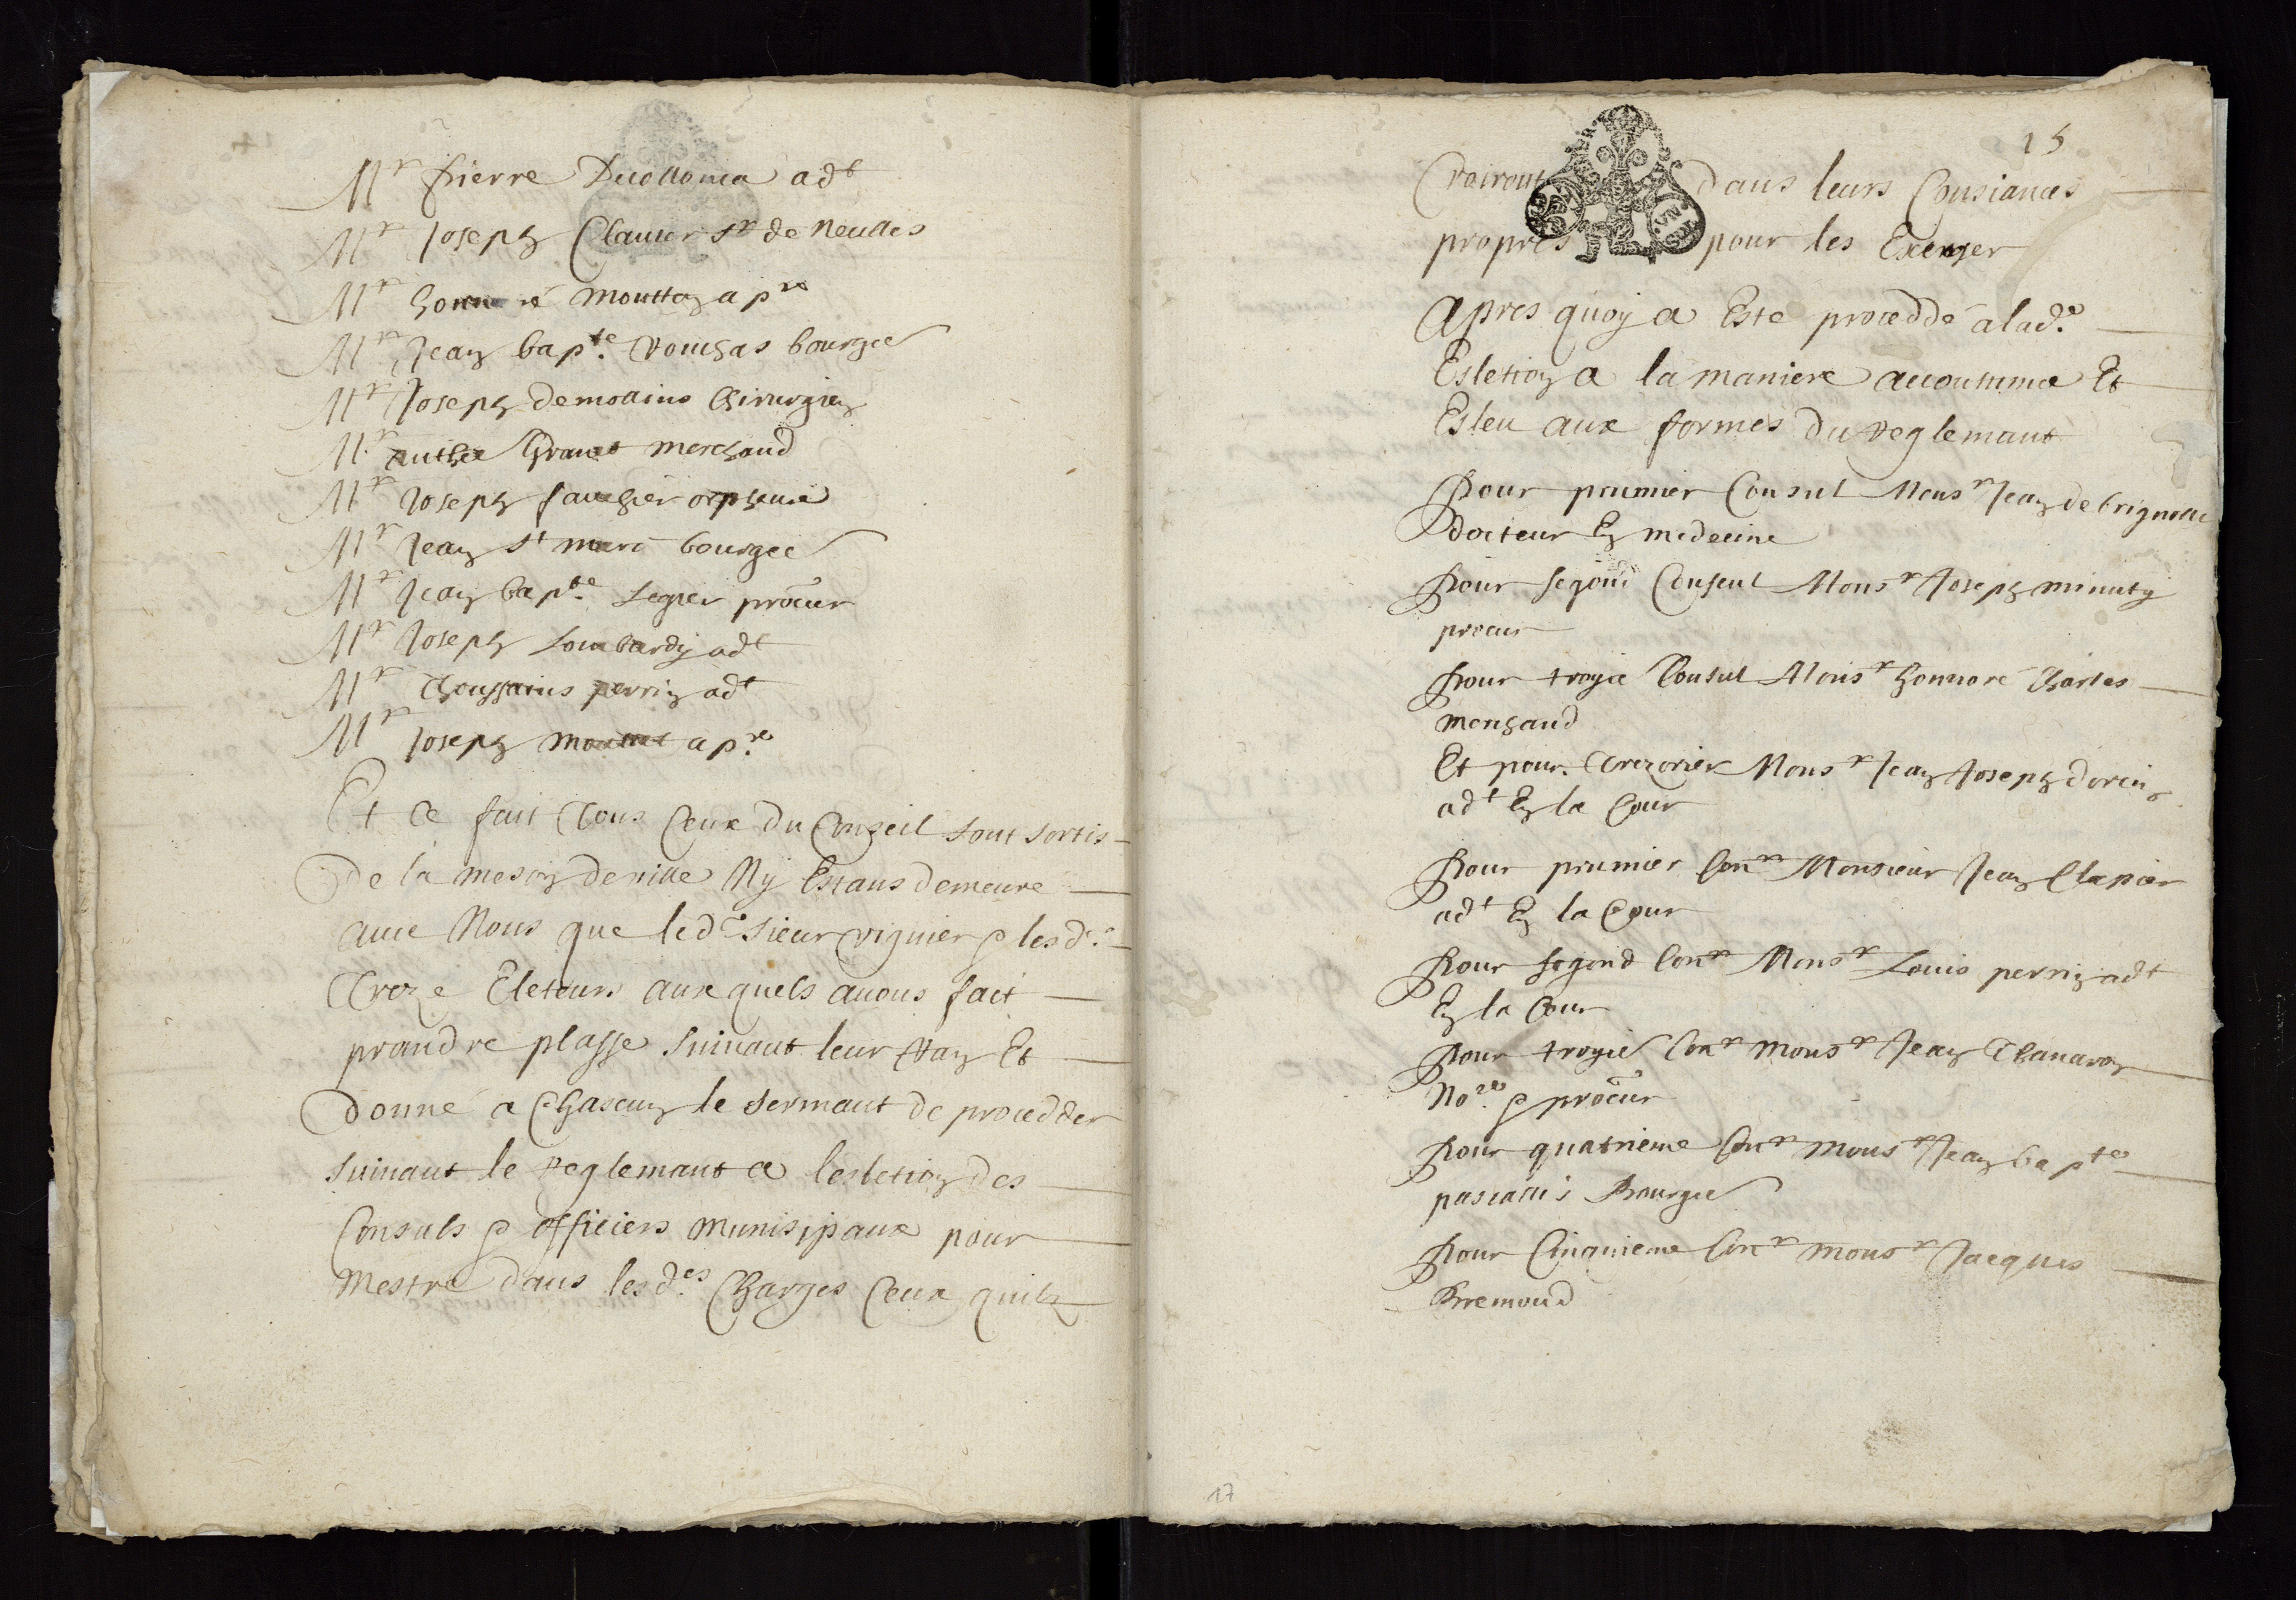 Mr pierre Decollonia adt
Mr Joseph Clavier Sr de Neulles
Mr honnoré mouttoy apre
Mr Jean bapte Rouchas bourgee
Mr Joseph demollins Chirurgien
Mr Granet merchand
Mr Joseph fauchier orpheure
Mr Jean St marc bourgee
Mr Jean bapte Segier procur
Mr Joseph Lombardy adt
Mr Thoussains perrin adt
Mr Joseph apre
Et Ce fait Tous Ceux du Conseil sont sortis
De la meson de ville Ny Estans demeure
avec Nous que le dt sieur viguier & les ds
Treze Eleteurs auxquels avons fait
prandre plasse suivant leur Ran Et
Donné a Chascun le serment de procedder
suivant le Reglemant a lesletion des
Consuls & officiers munisipaux pour
Mestre dans les des Charges Ceux quilz
15
Croiront dans leurs Consiances
propres pour les Exerçer
Apres quoy a Este proceddé a la de
Esletion a la maniere accoutumee Et
Esleu aux formes du reglemant
Pour prumier Consul Monsr Jean de brignolle
Docteur En medecine
Pour segond Conseul Monsr Joseph minuty
procur
Pour troysie Consul Monsr honnoré Charles
merchand
Et pour Trezorier Monsr Jean Joseph dorcin
adt En la Cour
Pour prumier Conr Monsieur Jean Clapier
adt En la Cour
Pour segond Conr Monsr Louis perrin adt
En la Cour
Pour troysie Conr Monsr Jean Chanaron
Nore & procur
Pour quatrieme Conr Monsr Jean bapte
pascalis Bourgee
Pour Cinquieme Conr Monsr Jacques
Bremond
17